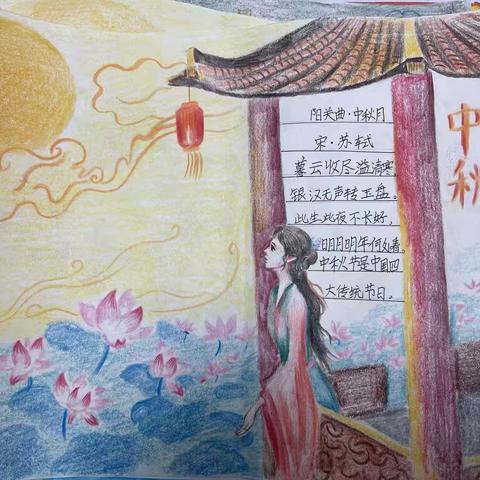 阳关曲·中秋月
宋·苏轼
暮云收尽溢清寒,
银汉无声转玉盘。
此生此夜不长好,
明月明年何处看。
中秋节是中国四
大传统节日。
中秋